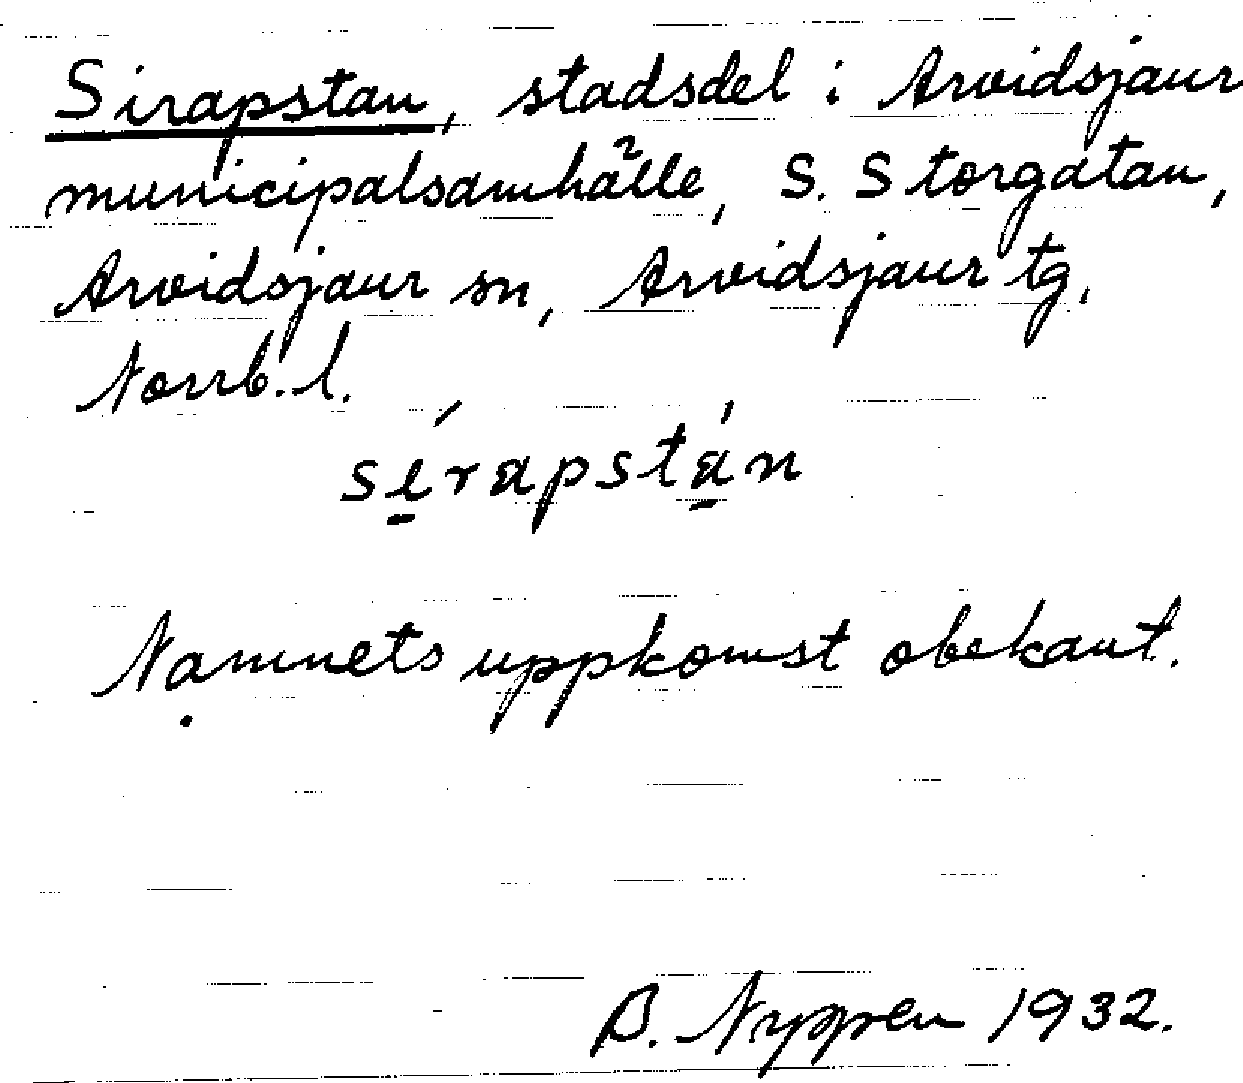 Sirapstan, stadsdel i Arvidsjaur
municipalsamhälle, S. Storgatan,
Arvidsjaur sn, Arvidsjaur tg,
Norrb. l.
sírapstán
Namnets uppkomst obekant.
B. Nyppen 1932.